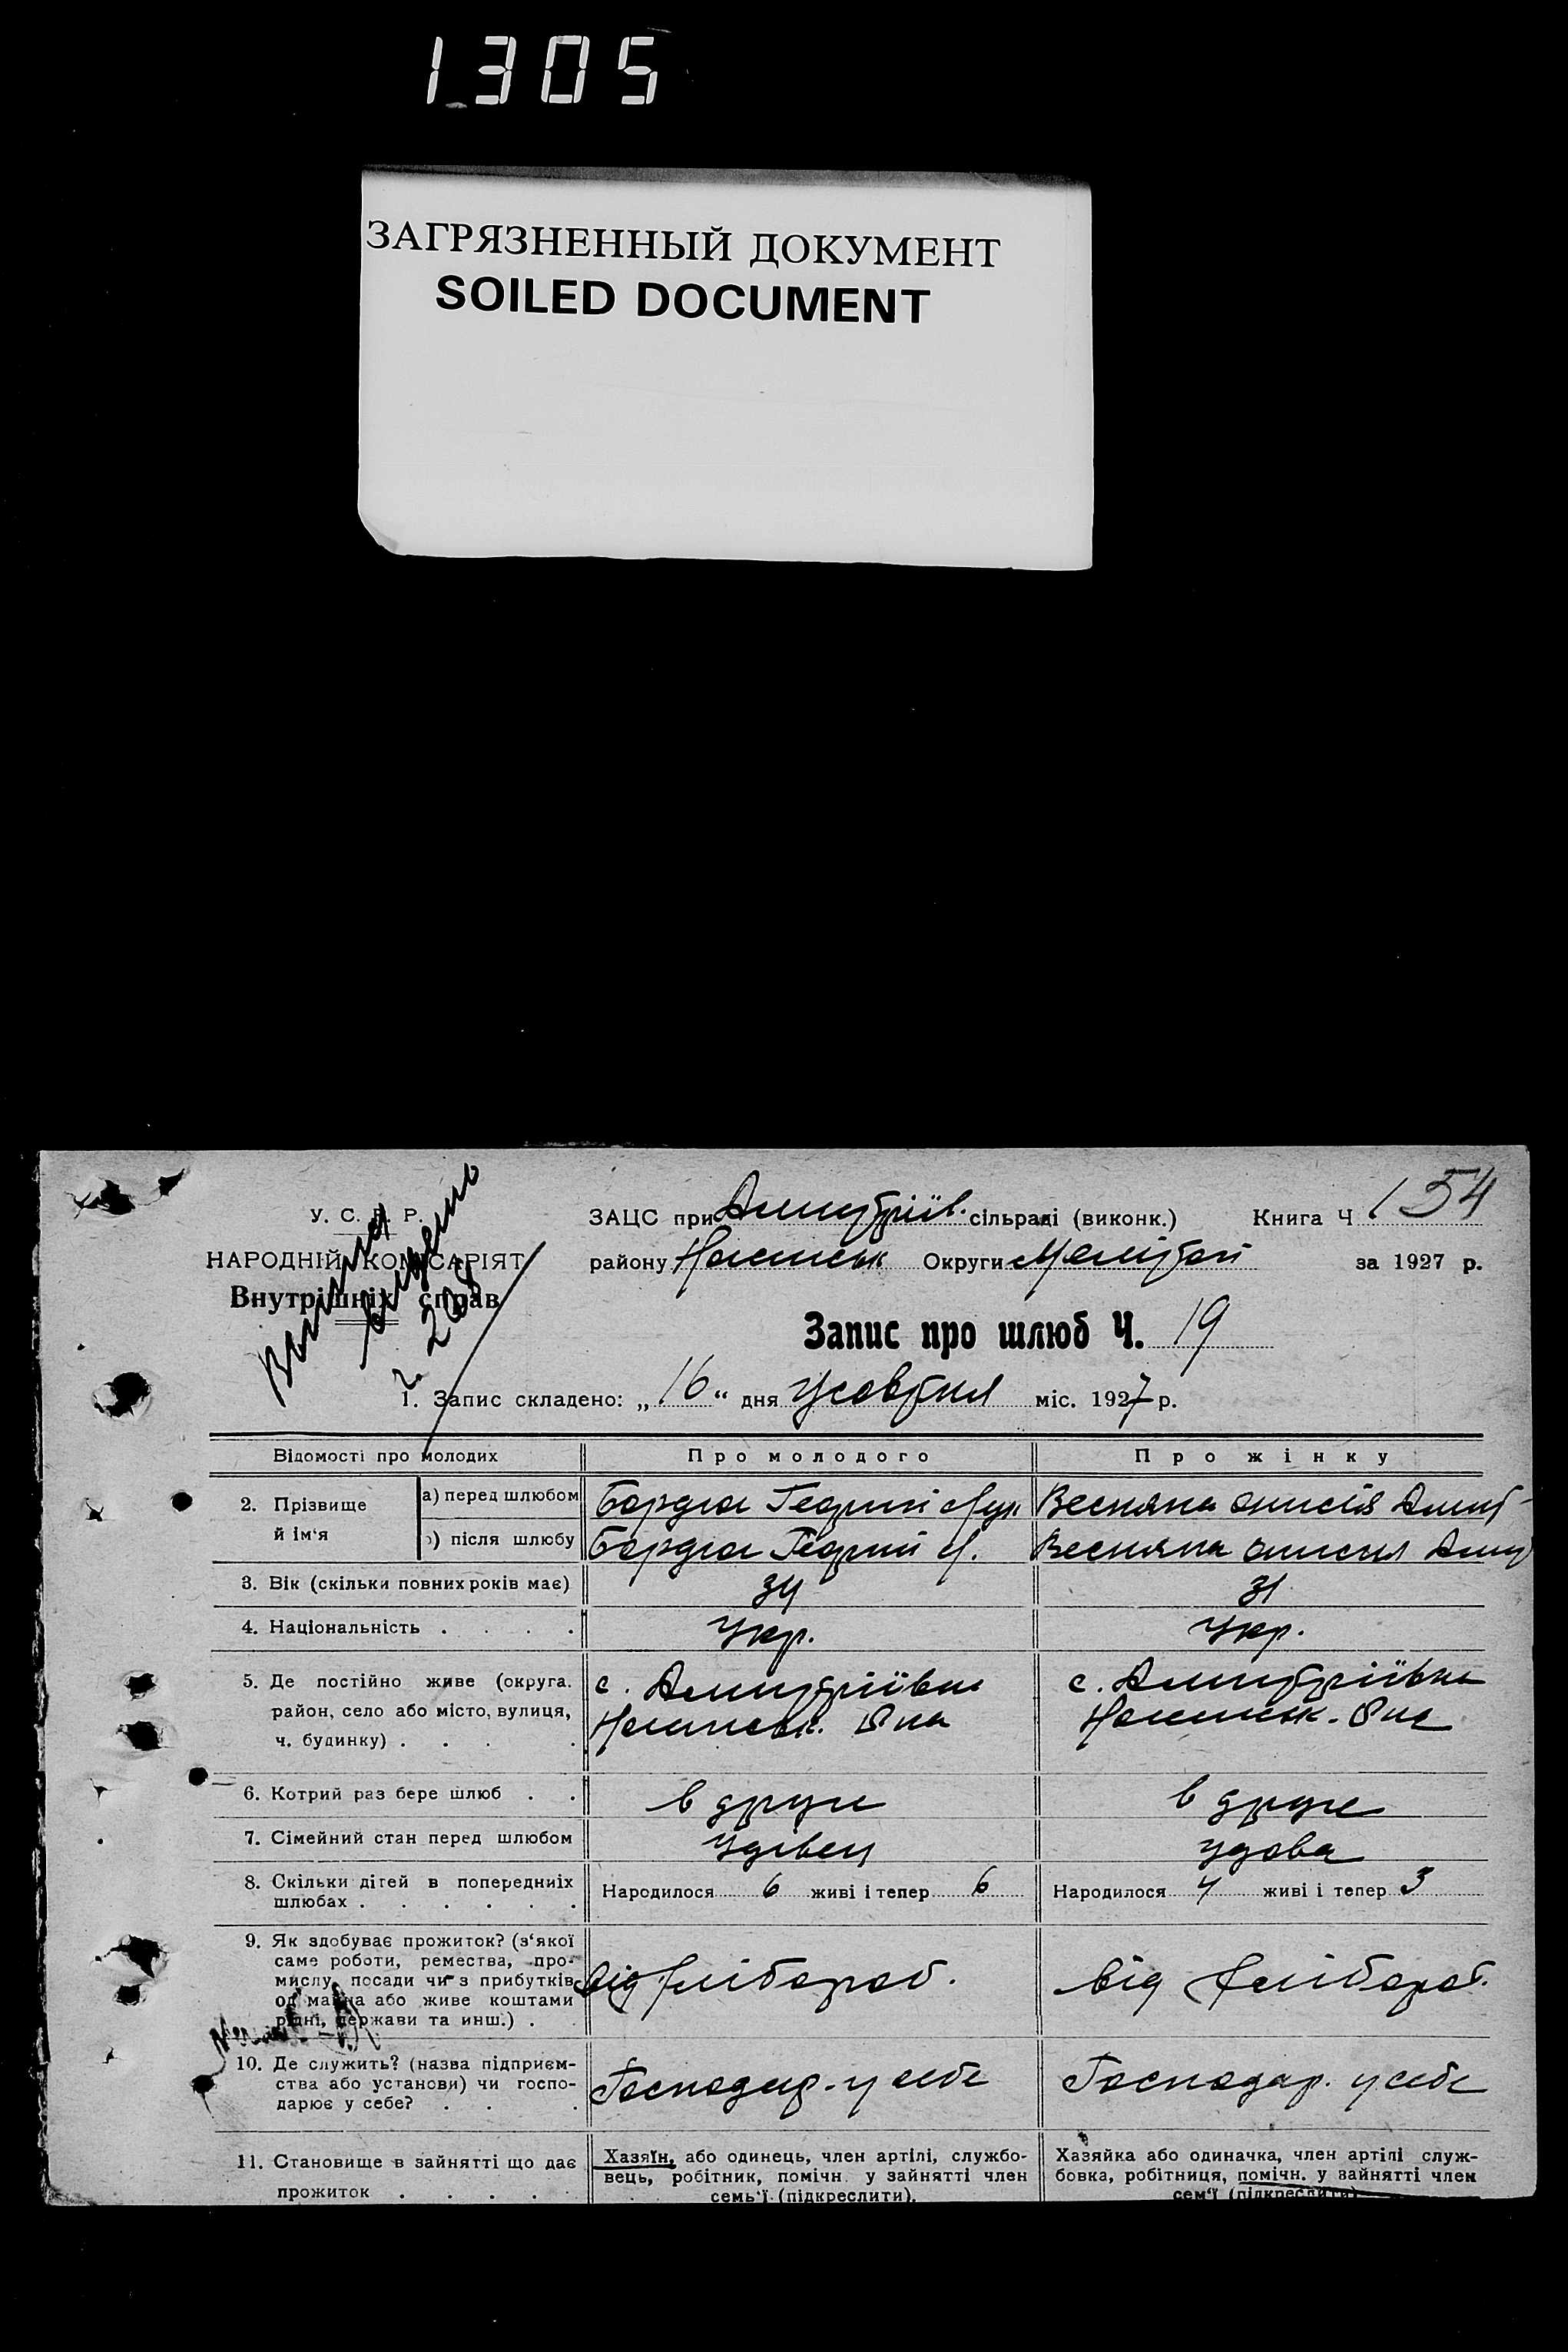 1305
ЗАГРЯЗНЕННЫЙ ДОКУМЕНТ
SOILED DOCUMENT
У. С. Р. Р.
НАРОДНІЙ КОМІСАРІЯТ
Внутрішніх справ
ЗАЦС при Дмитріїв. сільраді (виконк.) Книга Ч 154
району Округи за 1927 р.
Запис про шлюб Ч. 19
1. Запис складено: „16“ дня Жовтня міс. 1927 р.
Відомості про молодих Про молодого Про жінку
2. Прізвище й ім‘я
а) перед шлюбом Георгий Весняна Анисія Дмит
б) після шлюбу Георгий Весняна Анисия Дмит
3. Вік (скільки повних років має) 34 31
4. Національність . . . . Укр. Укр.
5. Де постійно живе (округа. с. Дмитріївка с. Дмитріївка
район, село або місто, вулиця,
ч. будинку) . . . .
6. Котрий раз бере шлюб . . в друге в друге
7. Сімейний стан перед шлюбом Удівец удова
8. Скільки дітей в попередніх Народилося 6 живі і тепер 6 Народилося 4 живі і тепер 3
шлюбах . . . . . .
9. Як здобуває прожиток? (з‘якої
саме роботи, ремества, про-
мислу, посади чи з прибутків від хліборob. від хлібороб.
од майна або живе коштами
рідні, держави та инш.) .
10. Де служить? (назва підприєм-
ства або установи) чи госпо- Господар. у себе Господар. у себе
дарює у себе? . . .
11. Становище в зайнятті що дає Хазяїн, або одинець, член артілі, службо- Хазяйка або одиначка, член артілі служ-
вець, робітник, помічн. у зайнятті член бовка, робітниця, помічн. у зайнятті член
прожиток . . . . . семь‘ї (підкреслити). сем‘ї (підкреслити)